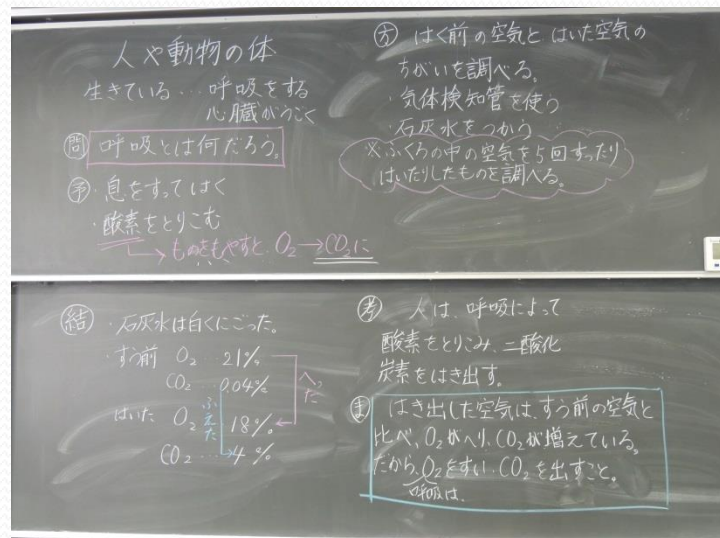 人や動物の体
生きている…呼吸をする
心臓がうごく
問 呼吸とは何だろう。
予・息をすってはく
・酸素をとりこむ
→ものをもやすと O₂→CO₂に
方 はく前の空気とはいた空気の
ちがいを調べる。
・気体検知管を使う
・石灰水をつかう
※ふくろの中の空気を5回すったり
はいたりしたものを調べる。
結・石灰水は白くにごった。
・すう前 O₂…21%
CO₂…0.04%
はいた O₂…18%
CO₂…4%
へった
ふえた
考 人は、呼吸によって
酸素をとりこみ、二酸化
炭素をはき出す。
ま はき出した空気は、すう前の空気と
比べ、O₂がへり、CO₂が増えている。
だから、O₂をすい、CO₂を出すこと。
呼吸は、